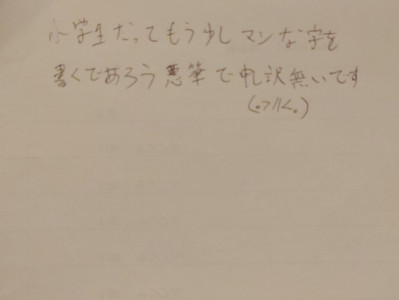 小学生だってもう少しマシな字を
書くであろう悪筆で申し訳無いです
(｡>﹏<｡)